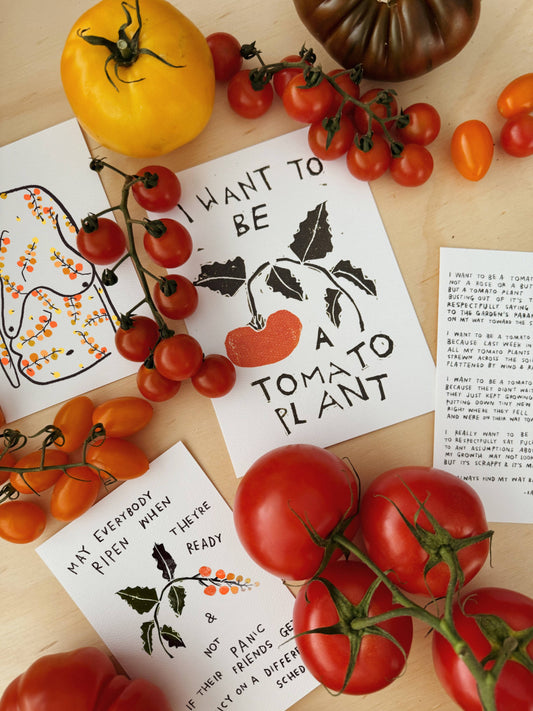 I WANT TO
BE
A
TOMATO
PLANT
I WANT TO BE A TOMA
NOT A ROSE OR A BUT
BUT A TOMATO PLANT
BUSTING OUT OF IT'S
RESPECTFULLY SAYING
TO THE GARDEN'S PARA
ON MY WAY TOWARD THE S
I WANT TO BE A TOMATO
BECAUSE LAST WEEK IN
ALL MY TOMATO PLANTS
STREWN ACROSS THE SO
FLATTENED BY WIND & R
I WANT TO BE A TOMATO
BECAUSE THEY DIDN'T WAIT
THEY JUST KEPT GROWING
PUTTING DOWN TINY NEW
RIGHT WHERE THEY FELL
AND WERE ON THEIR WAY TO
I REALLY WANT TO BE
TO RESPECTFULLY SAY FU
TO ANY ASSUMPTIONS ABO
MY GROWTH MAY NOT LOO
BUT IT'S SCRAPPY & IT'S M
ALWAYS FIND MY WAY B
MAY EVERYBODY
RIPEN WHEN
THEY'RE
READY
&
NOT PANIC
IF THEIR FRIENDS GE
ICY ON A DIFFERE
SCHED